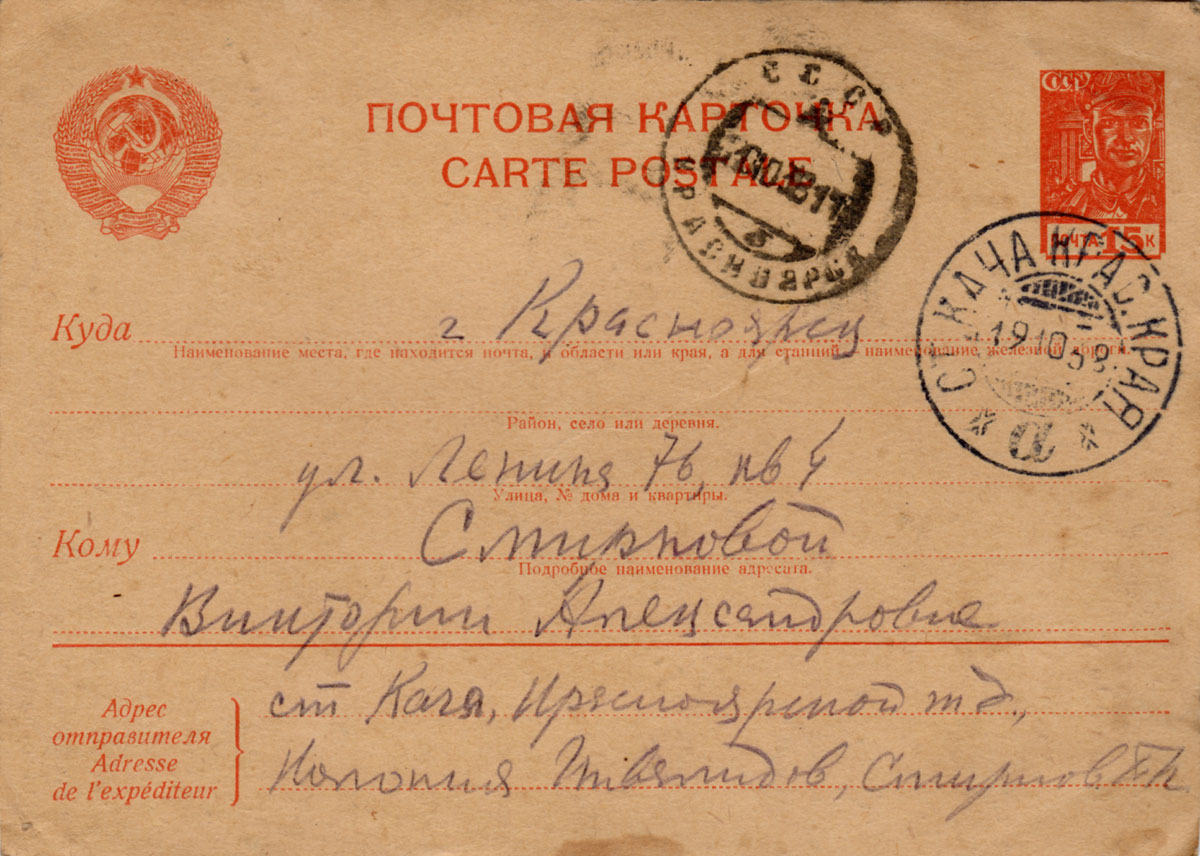 ПОЧТОВАЯ КАРТОЧКА
CARTE POSTALE
СССР
ПОЧТА 15 К
СССР
КРАСНОЯРСК
б
СТ. КАЧА КРАС. КРАЯ
19 10 38
а
Куда г Красноярск
Наименование места, где находится почта, и области или края, а для станций – наименование железной дороги.
Район, село или деревня.
ул. Ленина 76, кв 4
Улица, № дома и квартиры.
Кому Смирновой
Подробное наименование адресата.
Виктории Александровне
Адрес
отправителя
Adresse
de l'expéditeur
ст Кача, Красноярской жд.,
Колония Инвалидов, Смирнов